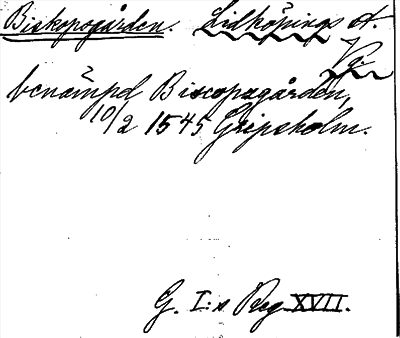 Biskopsgården. Lidköpings st.
Vg.
benämnd Biscopzgården,
10/2 1545 Gripsholm.
G. I:s Reg XVII.